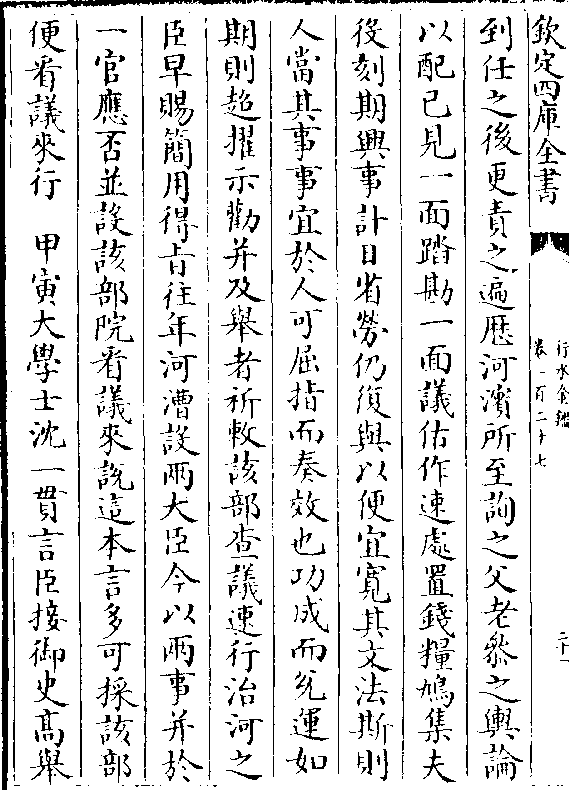 欽定四庫全書
行水金鑑
卷一百二十七
二十一
到任之後更責之遍歴河濱所至詢之父老叅之輿論
以配已見一面踏勘一面議估作速處置錢糧鳩集夫
後刻期興事計日省勞仍復與以便宜寛其文法斯則
人當其事事宜於人可屈指而奏效也功成而糺運如
期則超擢示勸并及舉者祈敕該部查議速行治河之
臣早賜簡用得㫖往年河漕設兩大臣今以兩事并於
一官應否並設該部院看議來說這本言多可採該部
便看議來行　甲寅大學士沈一貫言臣接御史髙舉